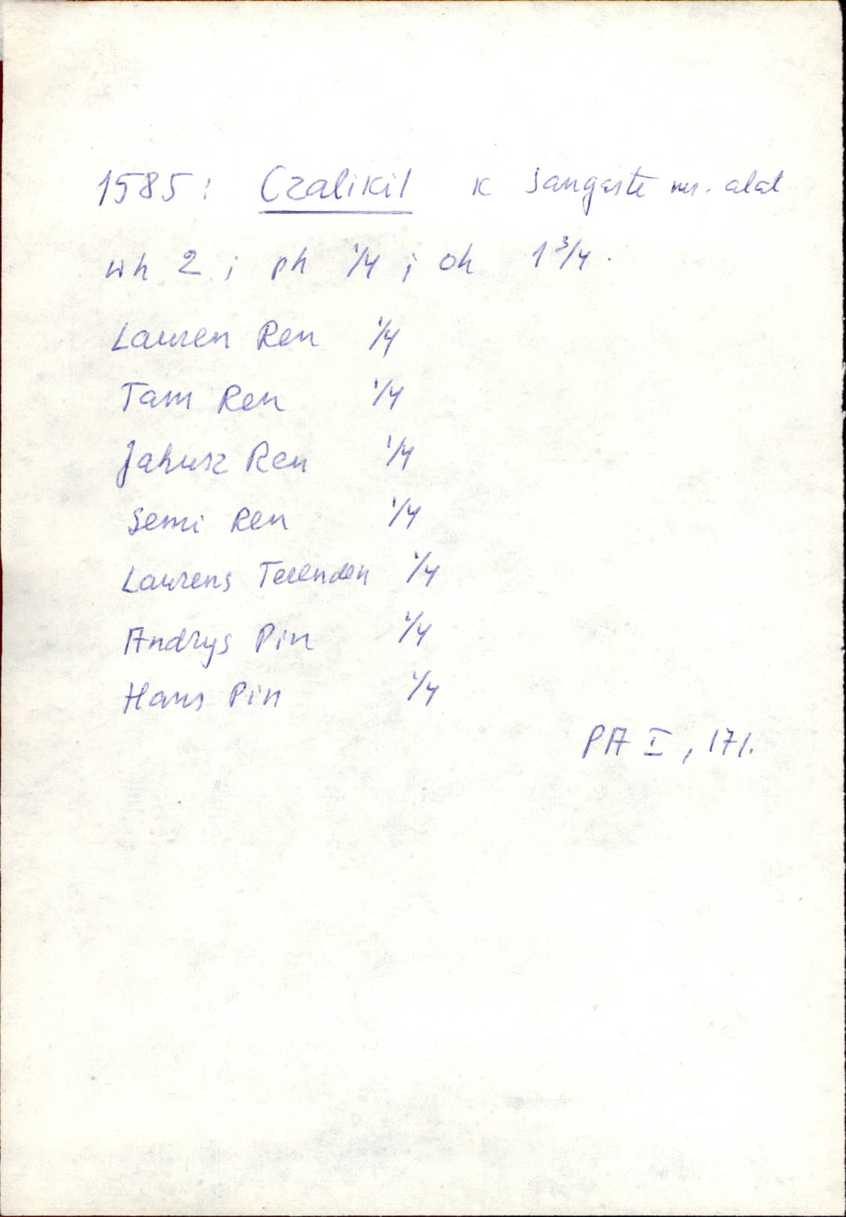 1585: Czalikil k Sangaste mr. alal
wh 2 ; ph 1/4 ; oh 1 3/4.
Lauren Ren 1/4
Tam Ren 1/4
Jahusz Ren 1/4
Semi Ren 1/4
Laurens Tecenden 1/4
Andrys Pin 1/4
Hans Pin 1/4
PA I, 171.